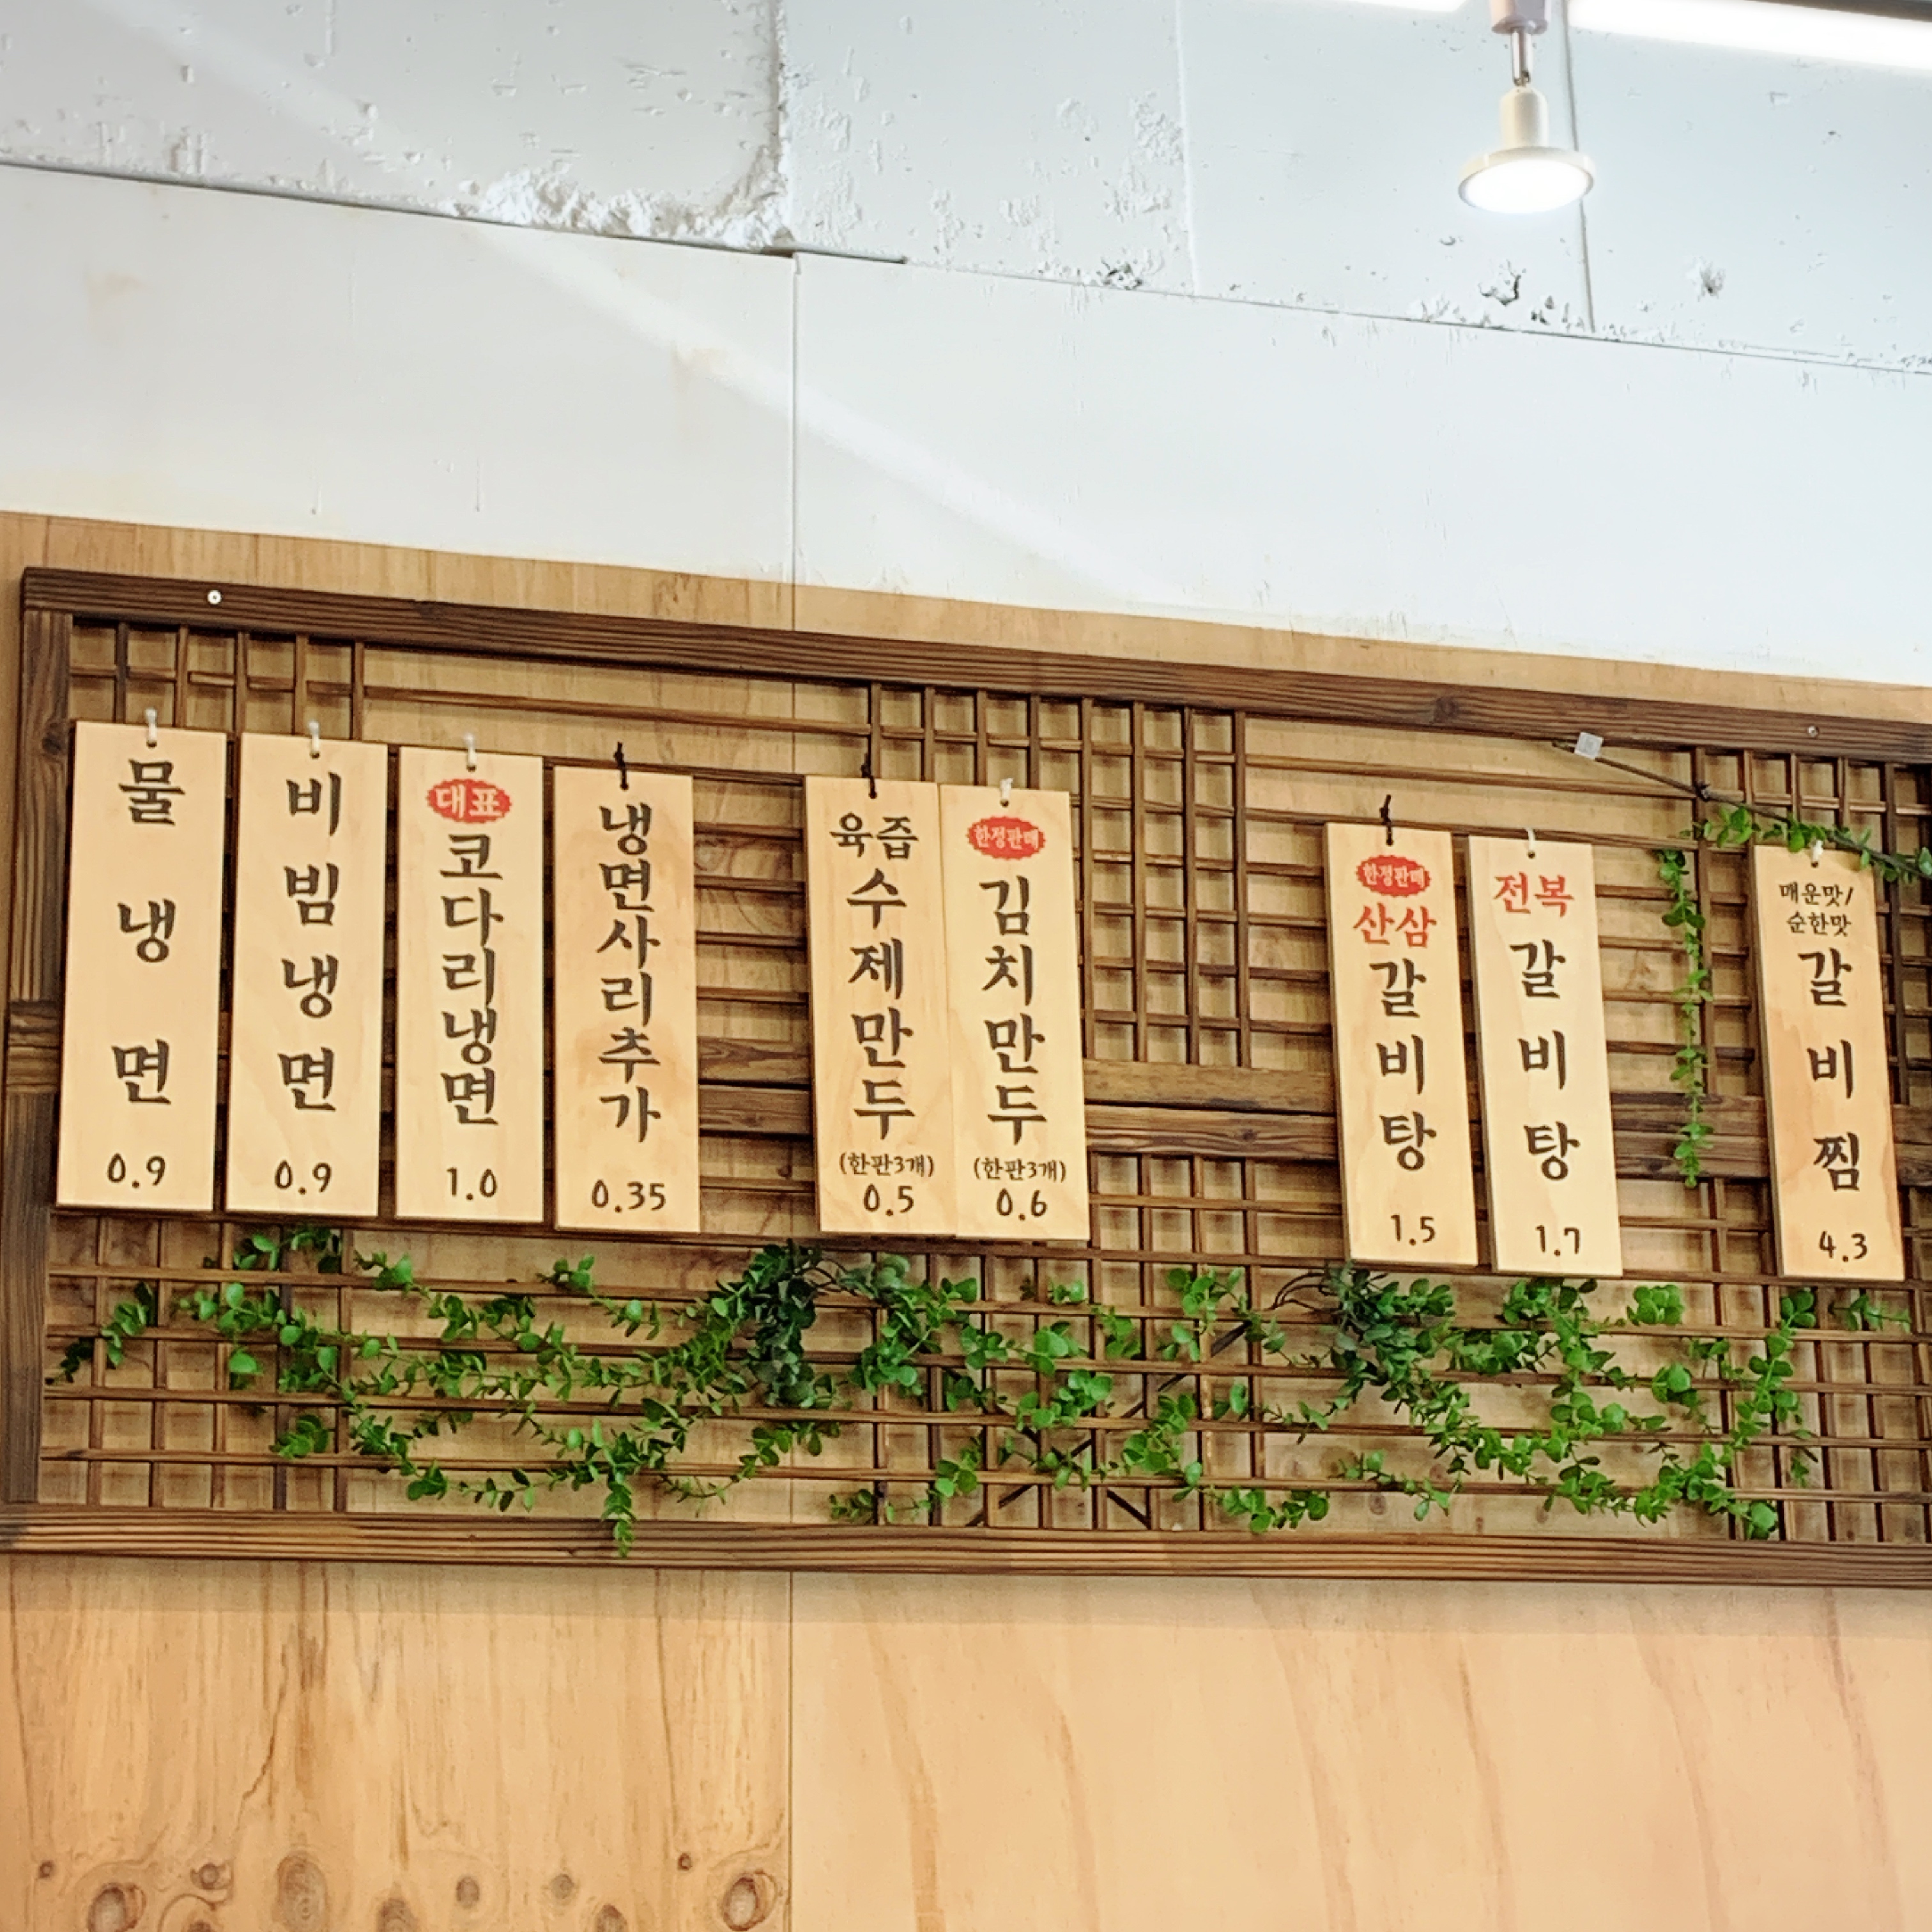 물냉면
0.9
비빔냉면
0.9
대표
코다리냉면
1.0
냉면사리추가
0.35
육즙
수제만두
(한판3개)
0.5
한정판매
김치만두
(한판3개)
0.6
한정판매
산삼
갈비탕
1.5
전복
갈비탕
1.7
매운맛/
순한맛
갈비찜
4.3